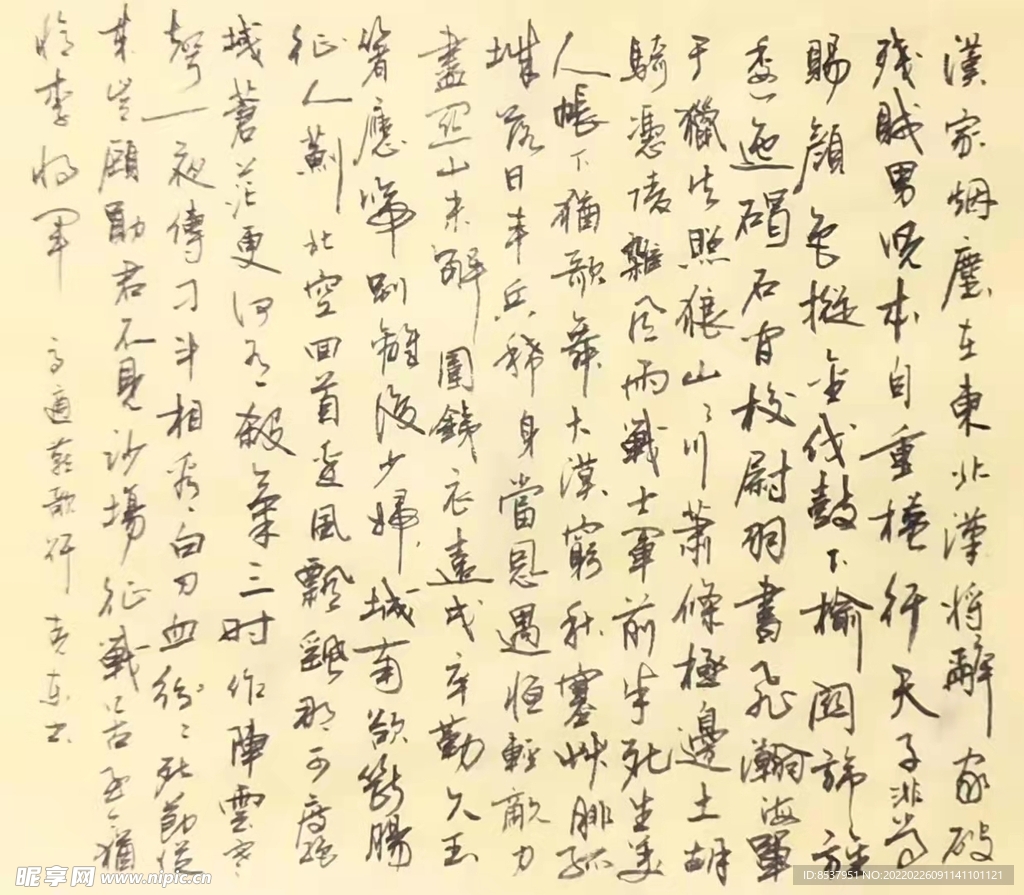 漢家烟塵在東北漢將辭家破
殘賊男児本自重橫行天子非常
賜顔色摐金伐鼓下榆関旆旌
逶迤碣石間校尉羽書飛瀚海單
于獵火照狼山々川蕭條極邊土胡
騎憑陵雜風雨戰士軍前半死生美
人帳下猶歌舞大漠窮秋塞草腓孤
城落日鬥兵稀身當恩遇恒輕敵力
盡関山未解圍鐵衣遠戍辛勤久玉
箸應啼別離後少婦城南欲斷腸
征人薊北空回首邊風飄飄那可度絕
域蒼茫更何有殺氣三時作陣雲寒
聲一夜傳刁斗相看白刃血紛々死節從
來豈顧勳君不見沙場征戰苦至今猶
憶李將軍 高適燕歌行 東书
昵享网 www.nipic.cn
ID:8537951 NO:20220226091141101121